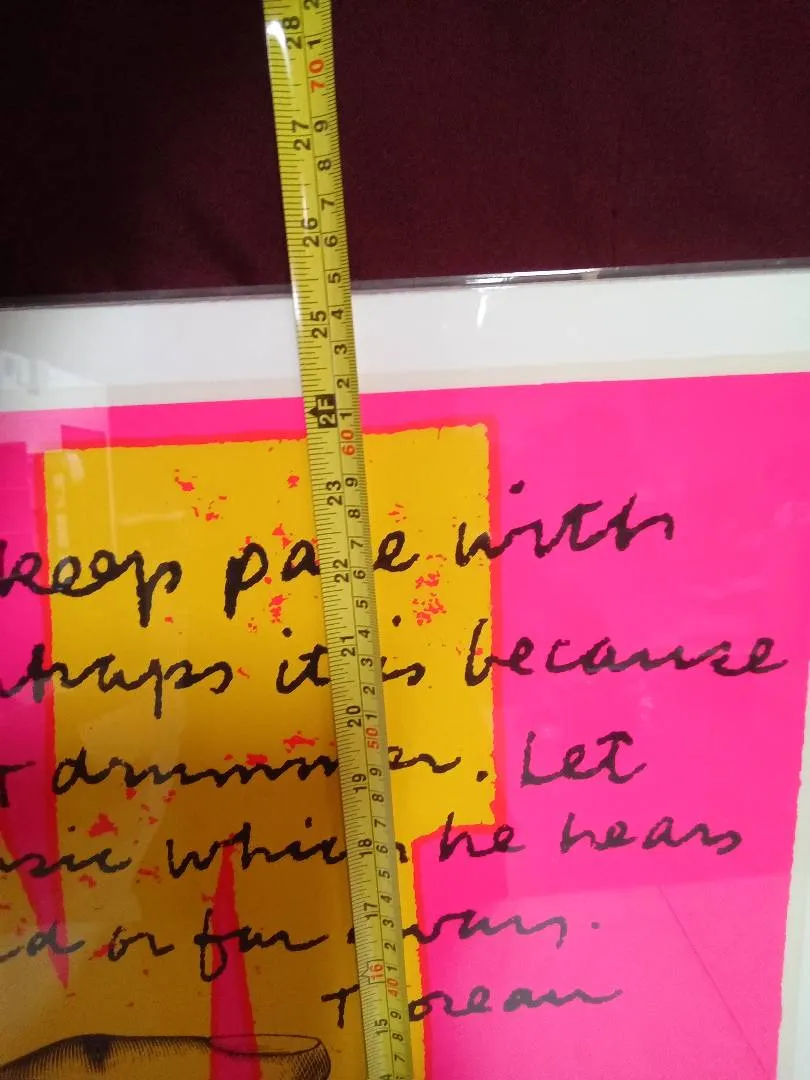 28 27 26 25 2F 23 22 21 20 19 18 17 16 15
2 1 70 9 8 7 6 5 4 3 2 1 60 9 8 7 6 5 4 3 2 1 50 9 8 7 6 5 4 3 2 1 40 9 8 7
keep pace with
rhaps it is because
t drummer. Let
usic which he hears
ed or far away.
Thoreau